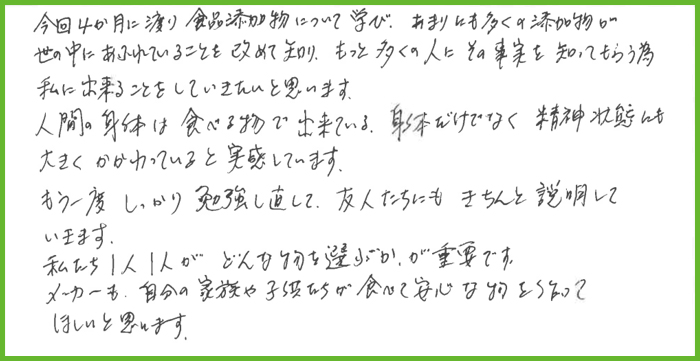 今回4か月に渡り食品添加物について学び、あまりにも多くの添加物が
世の中にあふれていることを改めて知り、もっと多くの人にその事実を知ってもらう為
私に出来ることをしていきたいと思います。
人間の身体は食べる物で出来ている。身体だけでなく精神状態にも
大きくかかわっていると実感しています。
もう一度しっかり勉強し直して、友人たちにもきちんと説明して
いきます。
私たち1人1人がどんな物を選ぶか、が重要です。
メーカーも、自分の家族や子供たちが食べて安心な物を作って
ほしいと思います。